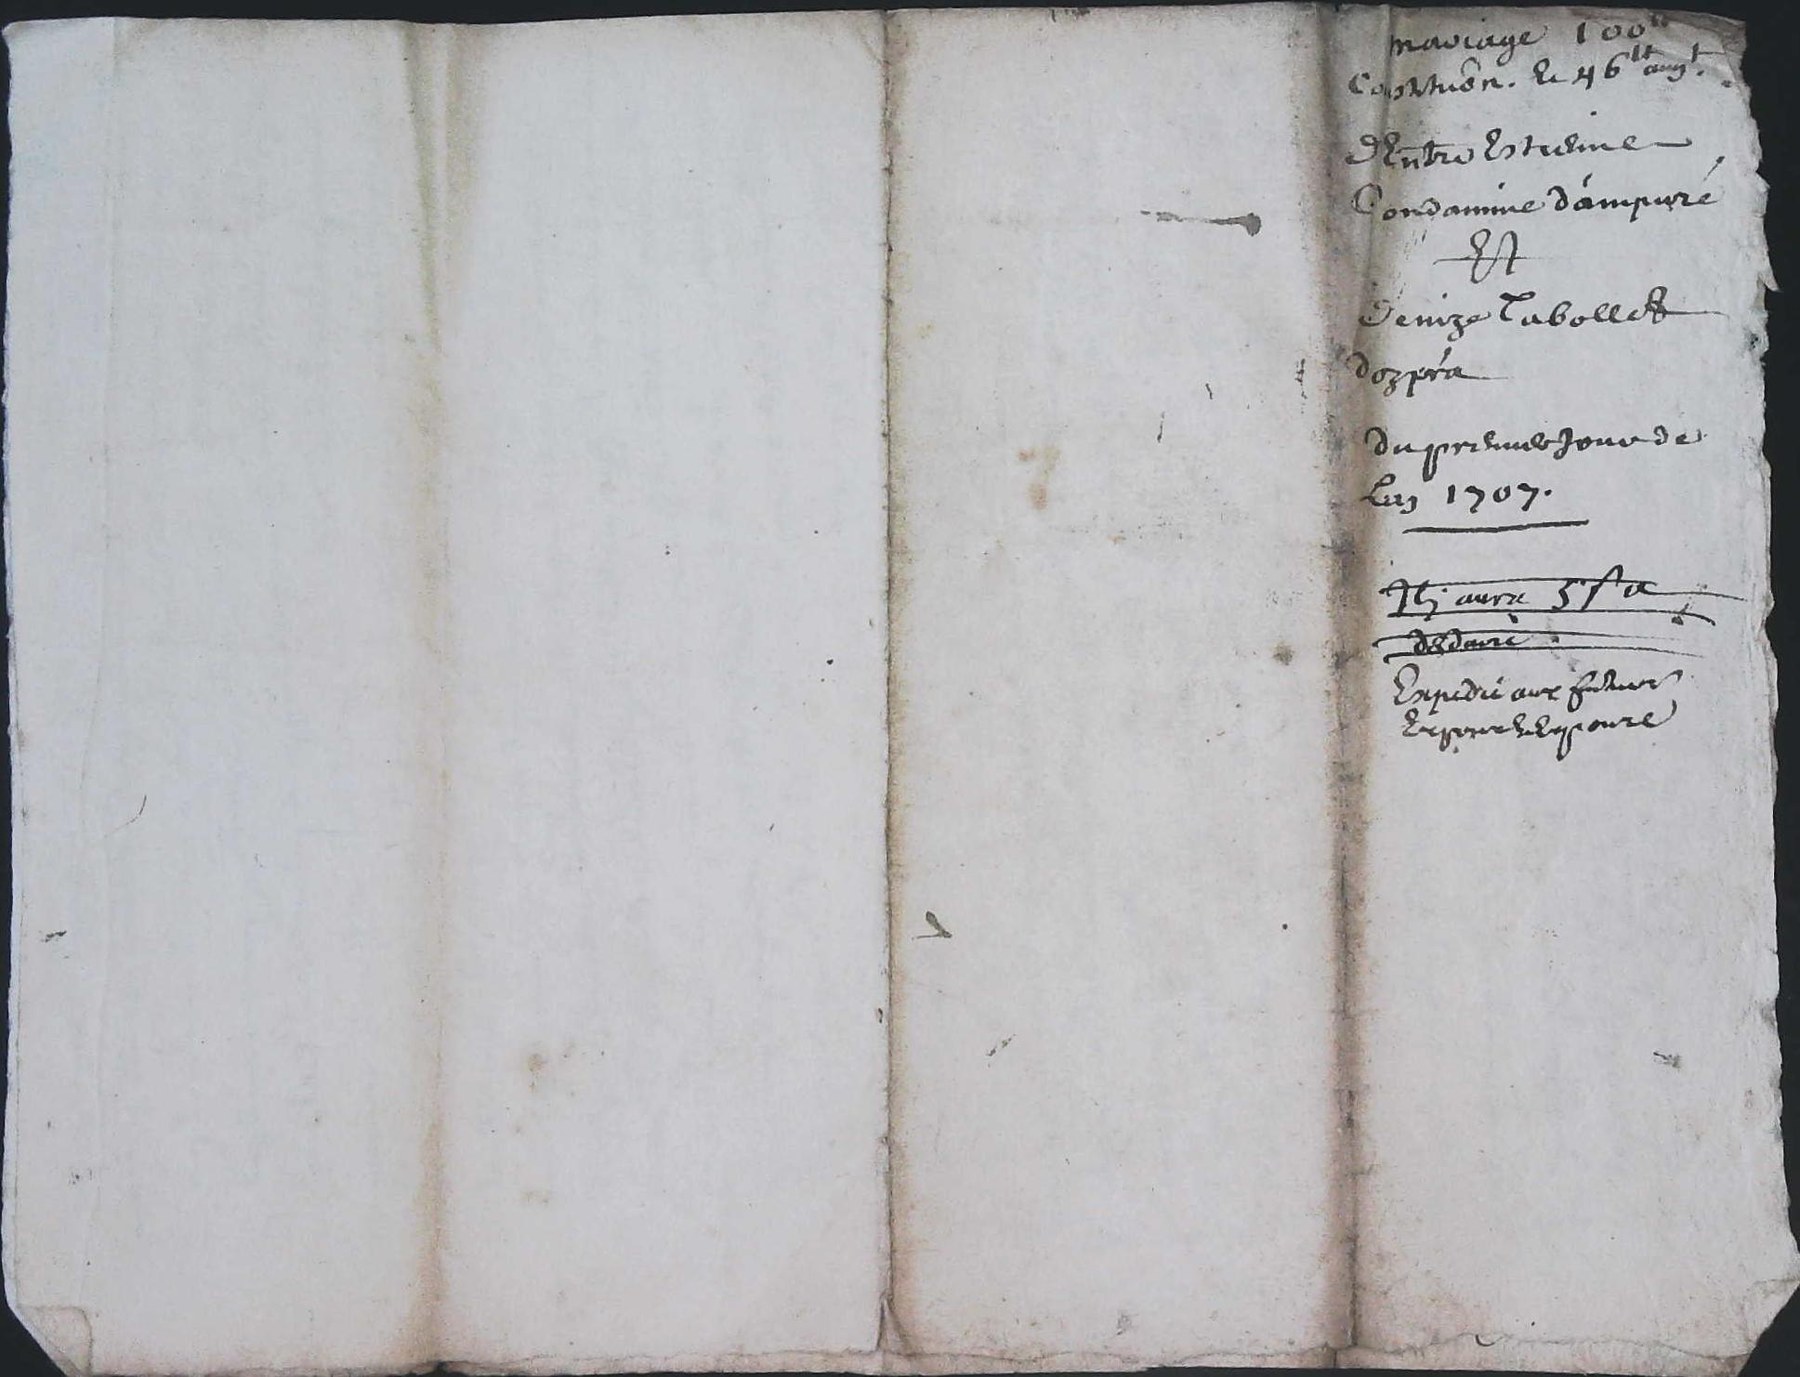 mariage 100lt
Constituõn. & 46lt augt.
d'Entre Estienne
Condamine d'ampuré
Et
Denize Tabollet
dozpra
du premier Jour de
Lan 1707.
Il y aura 5 s a
Expedié aux futurs
Espoux & Espouze